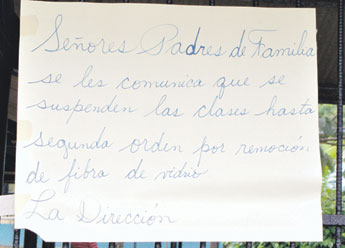 Señores Padres de Familia
se les comunica que se
suspenden las clases hasta
segunda orden por remoción
de fibra de vidrio
La Dirección